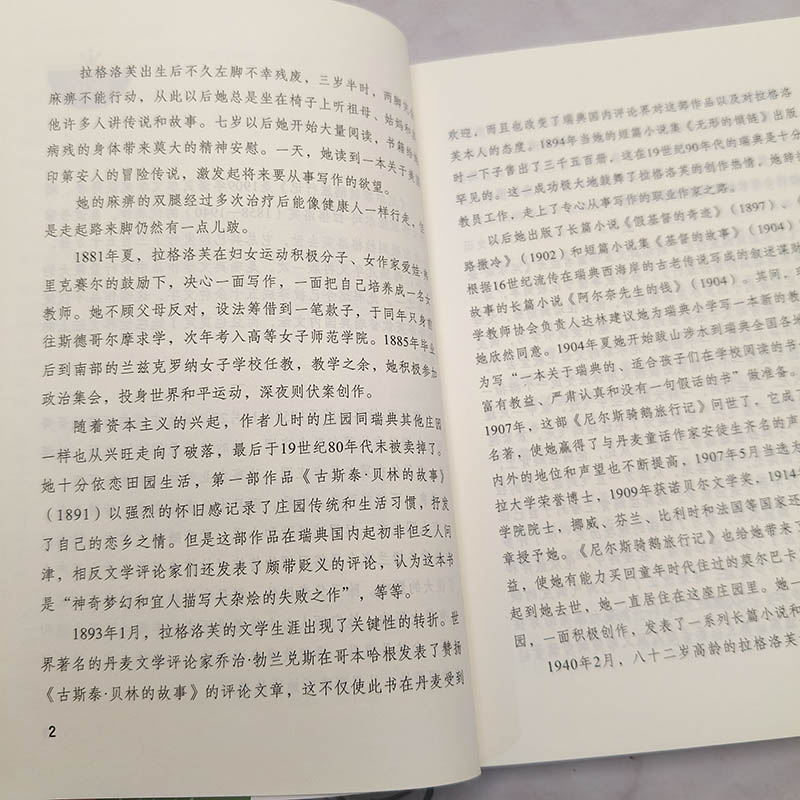 拉格洛芙出生后不久左脚不幸残废，三岁半时，两脚
麻痹不能行动，从此以后她总是坐在椅子上听祖母、姑妈和
他许多人讲传说和故事。七岁以后她开始大量阅读，书籍给
病残的身体带来莫大的精神安慰。一天，她读到一本关于美
印第安人的冒险传说，激发起将来要从事写作的欲望。
她的麻痹的双腿经过多次治疗后能像健康人一样行走，但
是走起路来脚仍然有一点儿跛。
1881年夏，拉格洛芙在妇女运动积极分子、女作家爱娃·
里克赛尔的鼓励下，决心一面写作，一面把自己培养成一名女
教师。她不顾父母反对，设法筹借到一笔款子，于同年只身前
往斯德哥尔摩求学，次年考入高等女子师范学院。1885年毕业
后到南部的兰兹克罗纳女子学校任教，教学之余，她积极参加
政治集会，投身世界和平运动，深夜则伏案创作。
随着资本主义的兴起，作者儿时的庄园同瑞典其他庄园
一样也从兴旺走向了破落，最后于19世纪80年代末被卖掉了。
她十分依恋田园生活，第一部作品《古斯泰·贝林的故事》
（1891）以强烈的怀旧感记录了庄园传统和生活习惯，抒发
了自己的恋乡之情。但是这部作品在瑞典国内起初非但乏人问
津，相反文学评论家们还发表了颇带贬义的评论，认为这本书
是“神奇梦幻和宜人描写大杂烩的失败之作”，等等。
1893年1月，拉格洛芙的文学生涯出现了关键性的转折。世
界著名的丹麦文学评论家乔治·勃兰兑斯在哥本哈根发表了赞扬
《古斯泰·贝林的故事》的评论文章，这不仅使此书在丹麦受到
2
欢迎，而且也改变了瑞典国内评论界对这部作品以及对拉格洛
芙本人的态度。1894年当她的短篇小说集《无形的锁链》出版
时一下子售出了三千五百册，这在19世纪90年代的瑞典是十分
罕见的。这一成功极大地鼓舞了拉格洛芙的创作热情，她辞
教员工作，走上了专心从事写作的职业作家之路。
以后她出版了长篇小说《假基督的奇迹》（1897）、《
路撒冷》（1902）和短篇小说集《基督的故事》（1904）
根据16世纪流传在瑞典西海岸的古老传说写成的叙述谋财
故事的长篇小说《阿尔奈先生的钱》（1904）。其间，
学教师协会负责人达林建议她为瑞典小学写一本新的教
她欣然同意。1904年夏她开始跋山涉水到瑞典全国各地
为写“一本关于瑞典的、适合孩子们在学校阅读的书
富有教益、严肃认真和没有一句假话的书”做准备。
1907年，这部《尼尔斯骑鹅旅行记》问世了，它成
名著，使她赢得了与丹麦童话作家安徒生齐名的声
内外的地位和声望也不断提高，1907年5月当选为
拉大学荣誉博士，1909年获诺贝尔文学奖，1914年
学院院士，挪威、芬兰、比利时和法国等国家还
章授予她。《尼尔斯骑鹅旅行记》也给她带来了
益，使她有能力买回童年时代住过的莫尔巴卡
起到她去世，她一直居住在这座庄园里。她一
园，一面积极创作，发表了一系列长篇小说和
1940年2月，八十二岁高龄的拉格洛芙